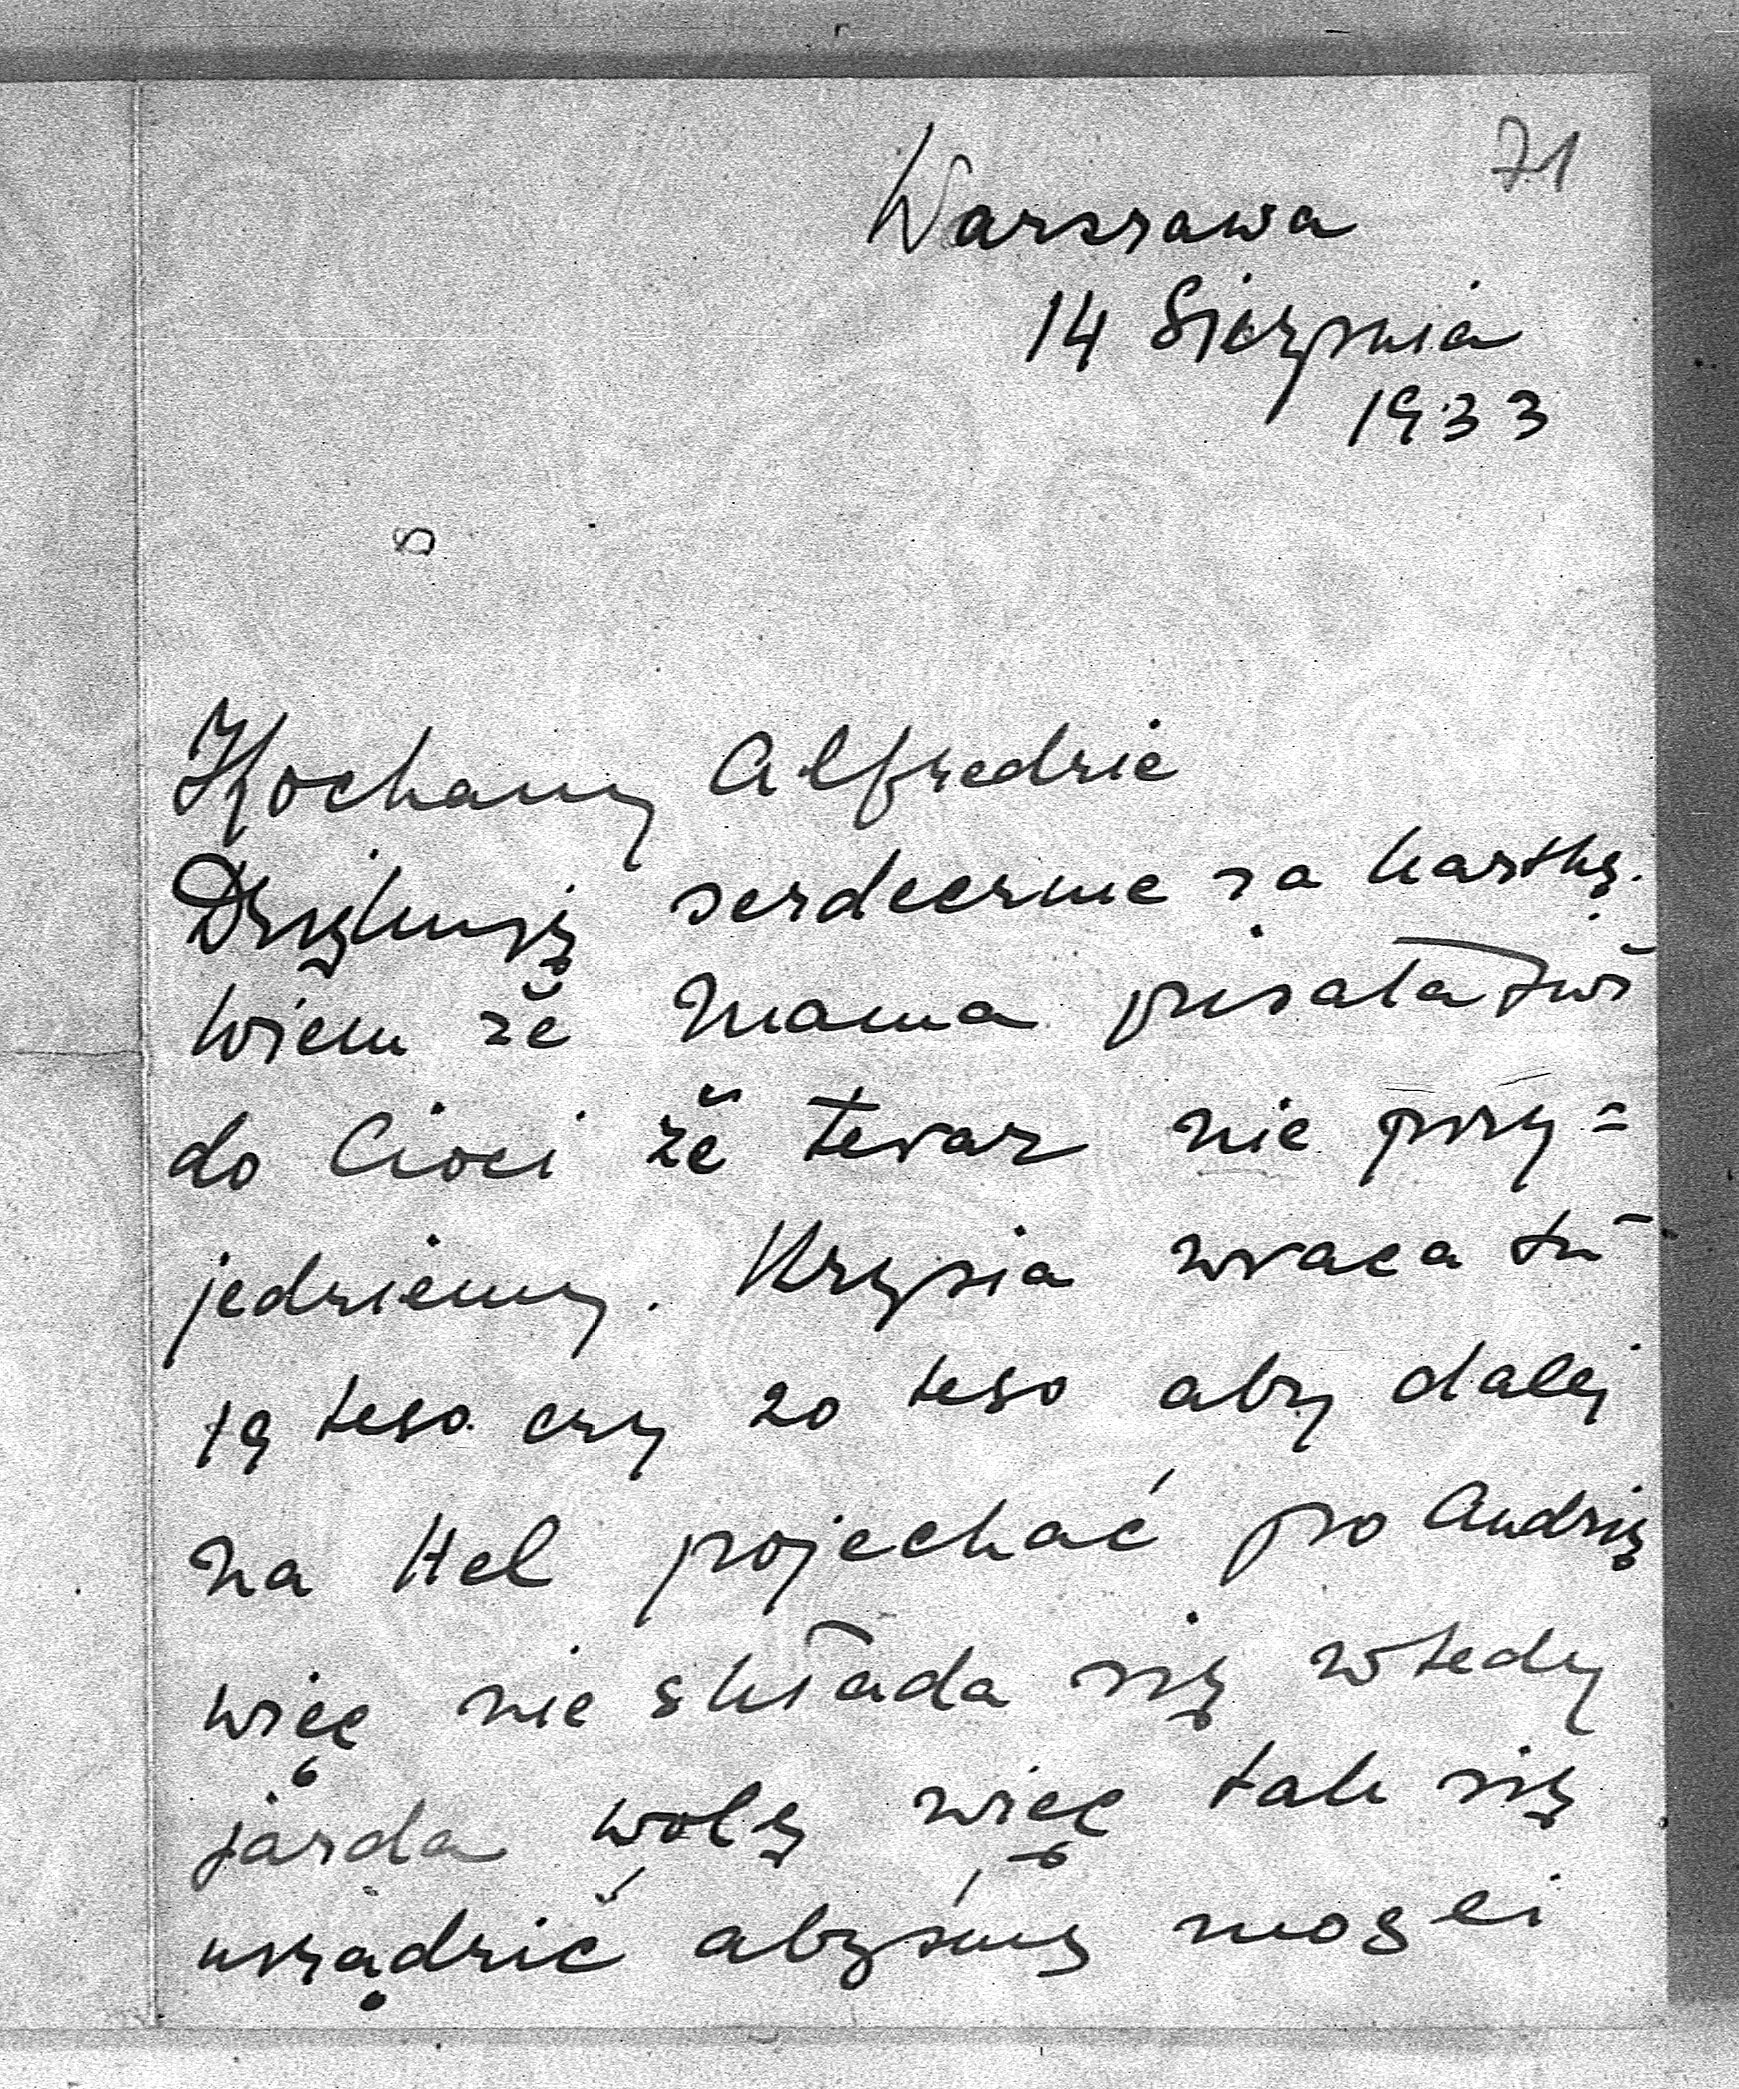 71
Warszawa
14 Sierpnia
1933
Kochany Alfredzie
Dziękuję serdecznie za kartkę.
Wiem że Mama pisała już
do Cioci że teraz nie przy=
jedziemy. Krysia wraca tu
19 tego czy 20 tego aby dalej
na Hel pojechać po Andzię
więc nie składa się wtedy
jazda wolę więc tak się
urządzić abyśmy mogli